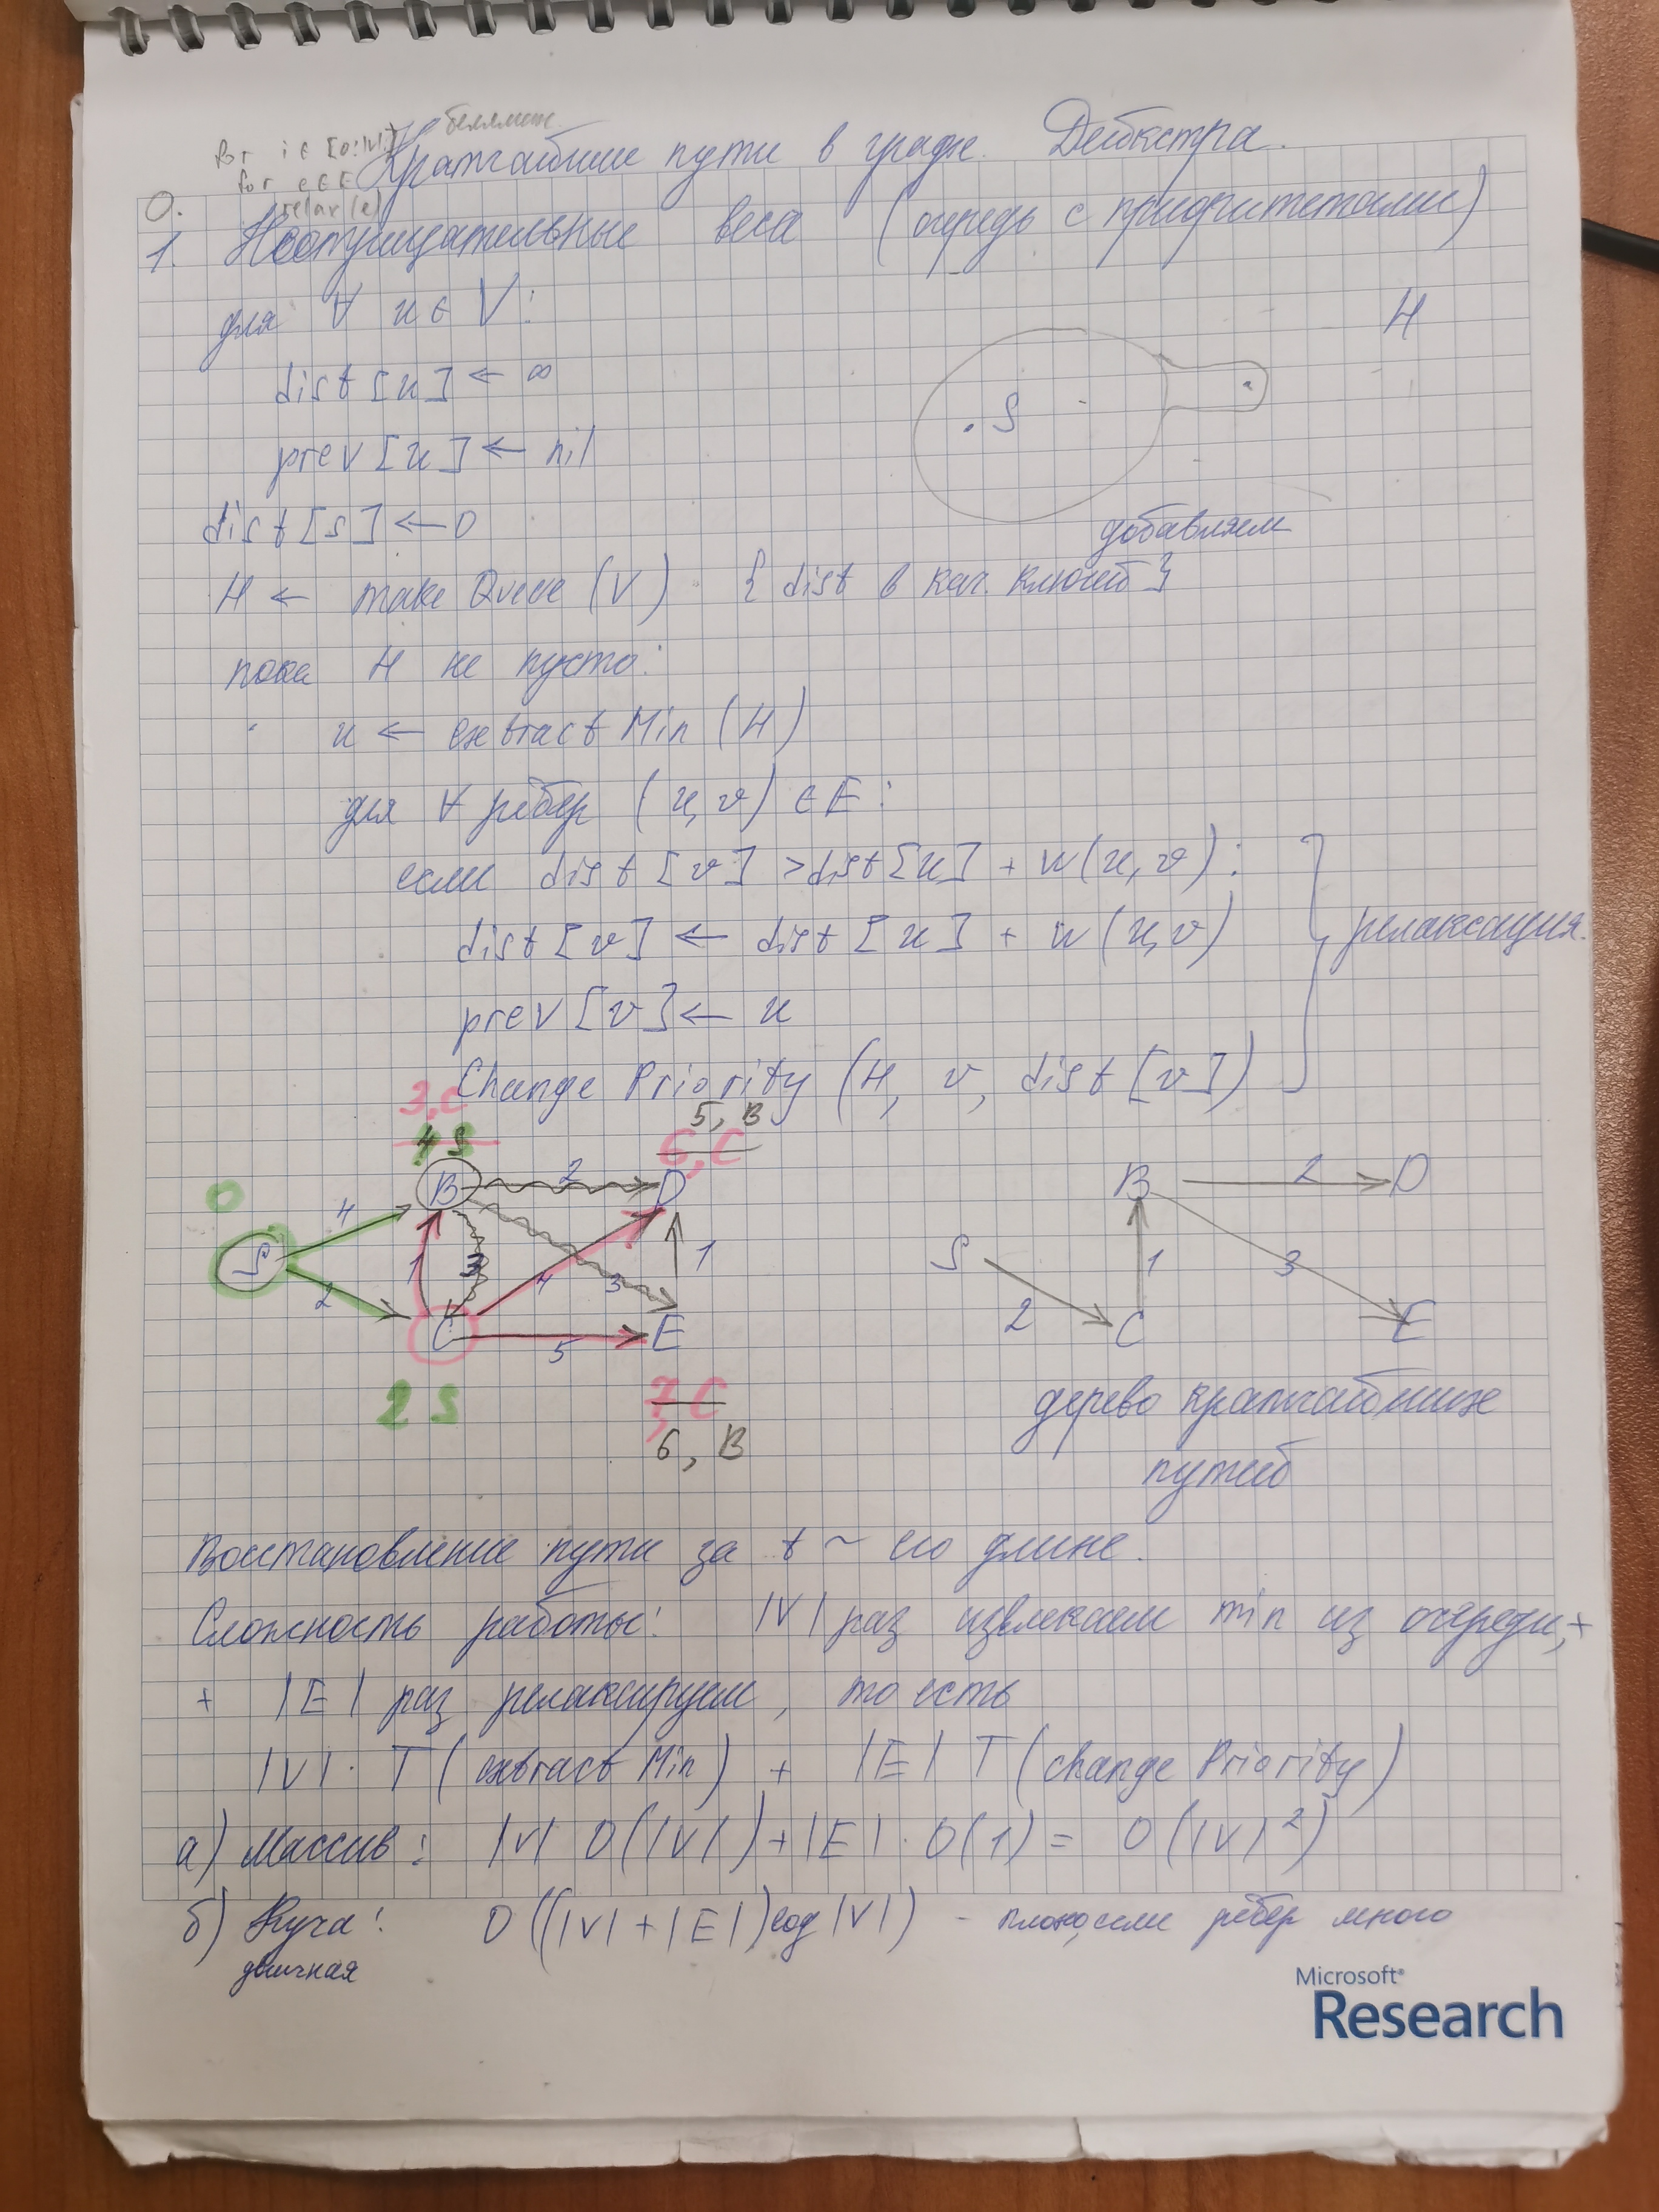 беллман
for i ∈ [0:|V|]
for e ∈ E
relax(e)
Кратчайшие пути в графе. Дейкстра.
0.
1. Неотрицательные веса (очередь с приоритетами)
для ∀ u ∈ V:
H
dist [u] ← ∞
S
prev [u] ← nil
dist [s] ← 0
добавляем
H ← make Queue (V) { dist в кач. ключей }
пока H не пусто:
u ← extract Min (H)
для ∀ рёбер (u, v) ∈ E:
если dist [v] > dist [u] + w (u, v):
dist [v] ← dist [u] + w (u, v)
релаксация.
prev [v] ← u
Change Priority (H, v, dist [v])
3, C
5, B
4 S
6, C
B 2 D
B 2 D
0
4
S
1 3 4 3 1
S
1 3
2
2
C 5 E
C E
2 S
7, C
6, B
дерево кратчайших
путей
Восстановление пути за t ~ его длине.
Сложность работы: |V| раз извлекаем min из очереди, +
+ |E| раз релаксируем, то есть
|V| · T (extract Min) + |E| T (change Priority)
а) Массив: |V| O(|V|) + |E| · O(1) = O(|V|²)
б) Куча: O((|V| + |E|) log |V|) - плохо, если рёбер много
двоичная
Microsoft®
Research